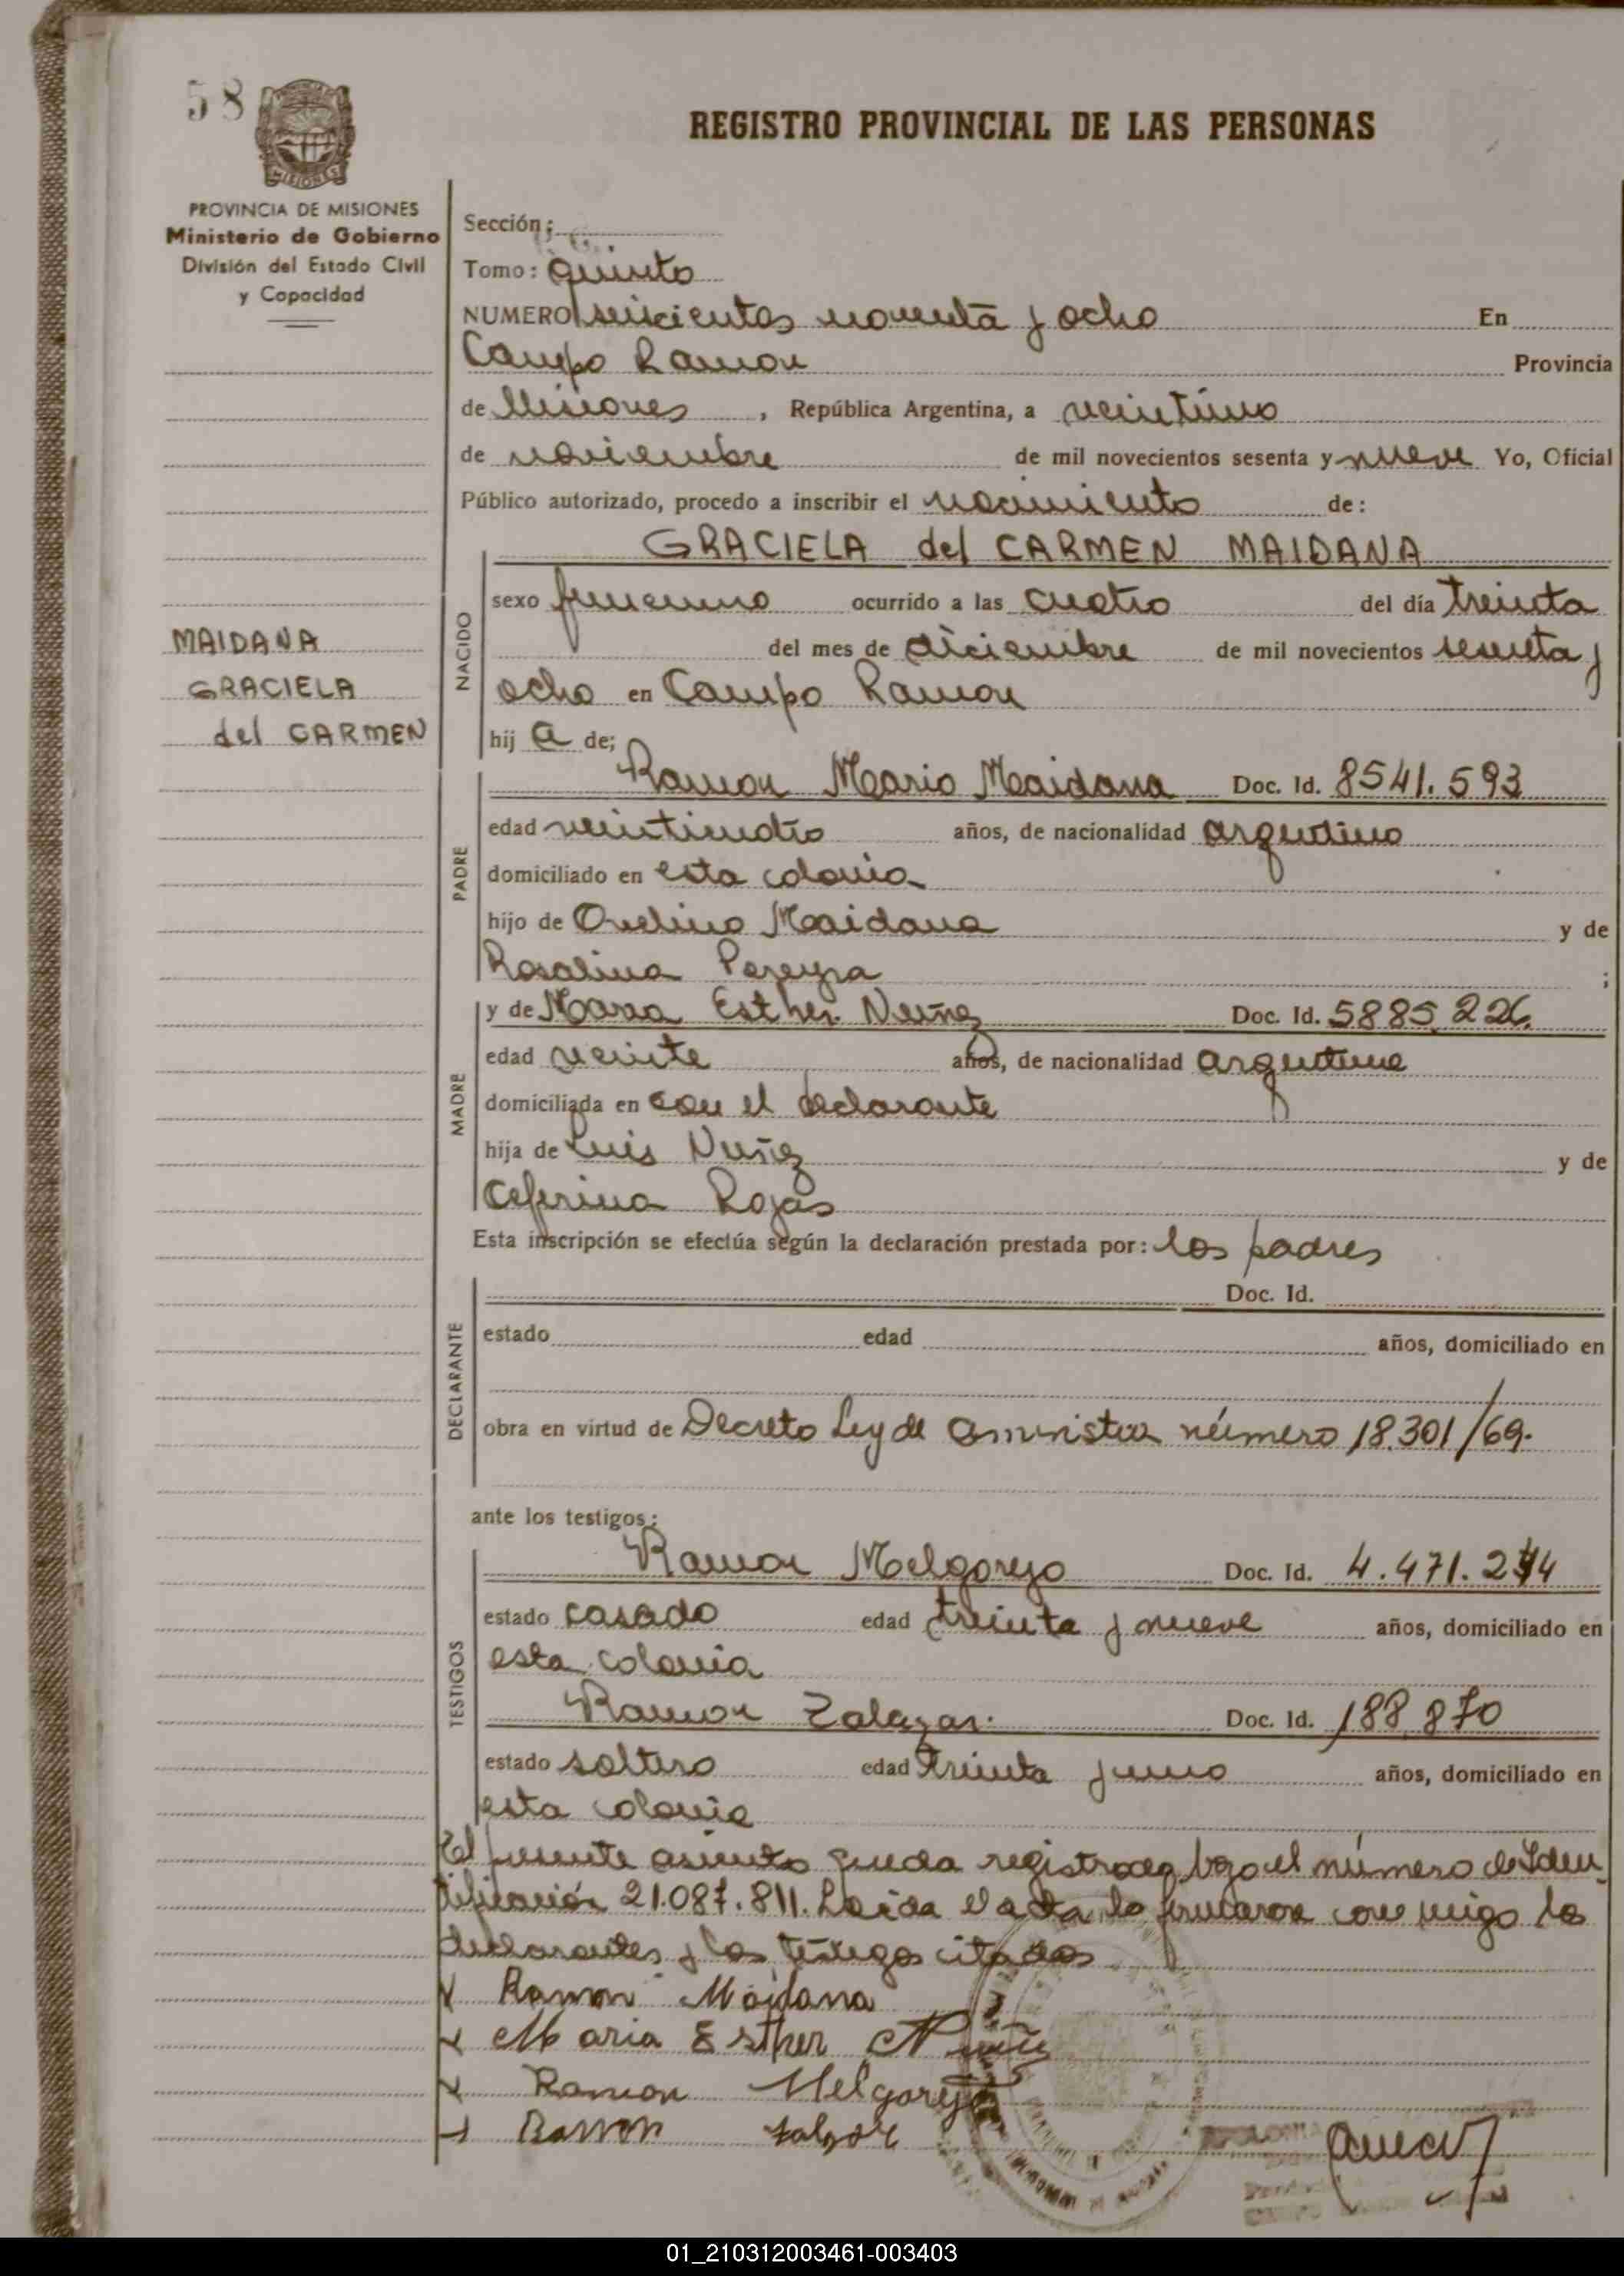 58
MISIONES
PROVINCIA DE MISIONES
Ministerio de Gobierno
División del Estado Civil
y Capacidad
REGISTRO PROVINCIAL DE LAS PERSONAS
Sección:
Tomo: quinto
NUMERO seiscientos noventa y ocho En
Campo Ramon Provincia
de Misiones, República Argentina, a veintiuno
de noviembre de mil novecientos sesenta y nueve Yo, Oficial
Público autorizado, procedo a inscribir el nacimiento de:
GRACIELA del CARMEN MAIDANA
MAIDANA
GRACIELA
del CARMEN
NACIDO
sexo femenino ocurrido a las cuatro del día treinta
del mes de diciembre de mil novecientos sesenta y
ocho en Campo Ramon
hij a de;
PADRE
Ramon Mario Maidana Doc. Id. 8541.593
edad veinticuatro años, de nacionalidad argentino
domiciliado en esta colonia
hijo de Ovelino Maidana y de
Rosalina Pereyra ;
MADRE
y de Maria Esther Nuñez Doc. Id. 5885.226
edad veinte años, de nacionalidad argentina
domiciliada en con el declarante
hija de Luis Nuñez y de
Ceferina Rojas
Esta inscripción se efectúa según la declaración prestada por: los padres
DECLARANTE
Doc. Id.
estado edad años, domiciliado en
obra en virtud de Decreto Ley de amnistia número 18.301/69.
ante los testigos:
TESTIGOS
Ramon Melgarejo Doc. Id. 4.471.244
estado casado edad treinta y nueve años, domiciliado en
esta colonia
Ramon Zalazar. Doc. Id. 188.870
estado soltero edad treinta y uno años, domiciliado en
esta colonia
El presente asiento queda registrado bajo el número de Iden
tificación 21.087.811. Leida el acta, la firmaron con migo los
declarantes y los testigos citados
Ramon Maidana
Maria Esther Nuñez
Ramon Melgarejo
Ramon
01_210312003461-003403